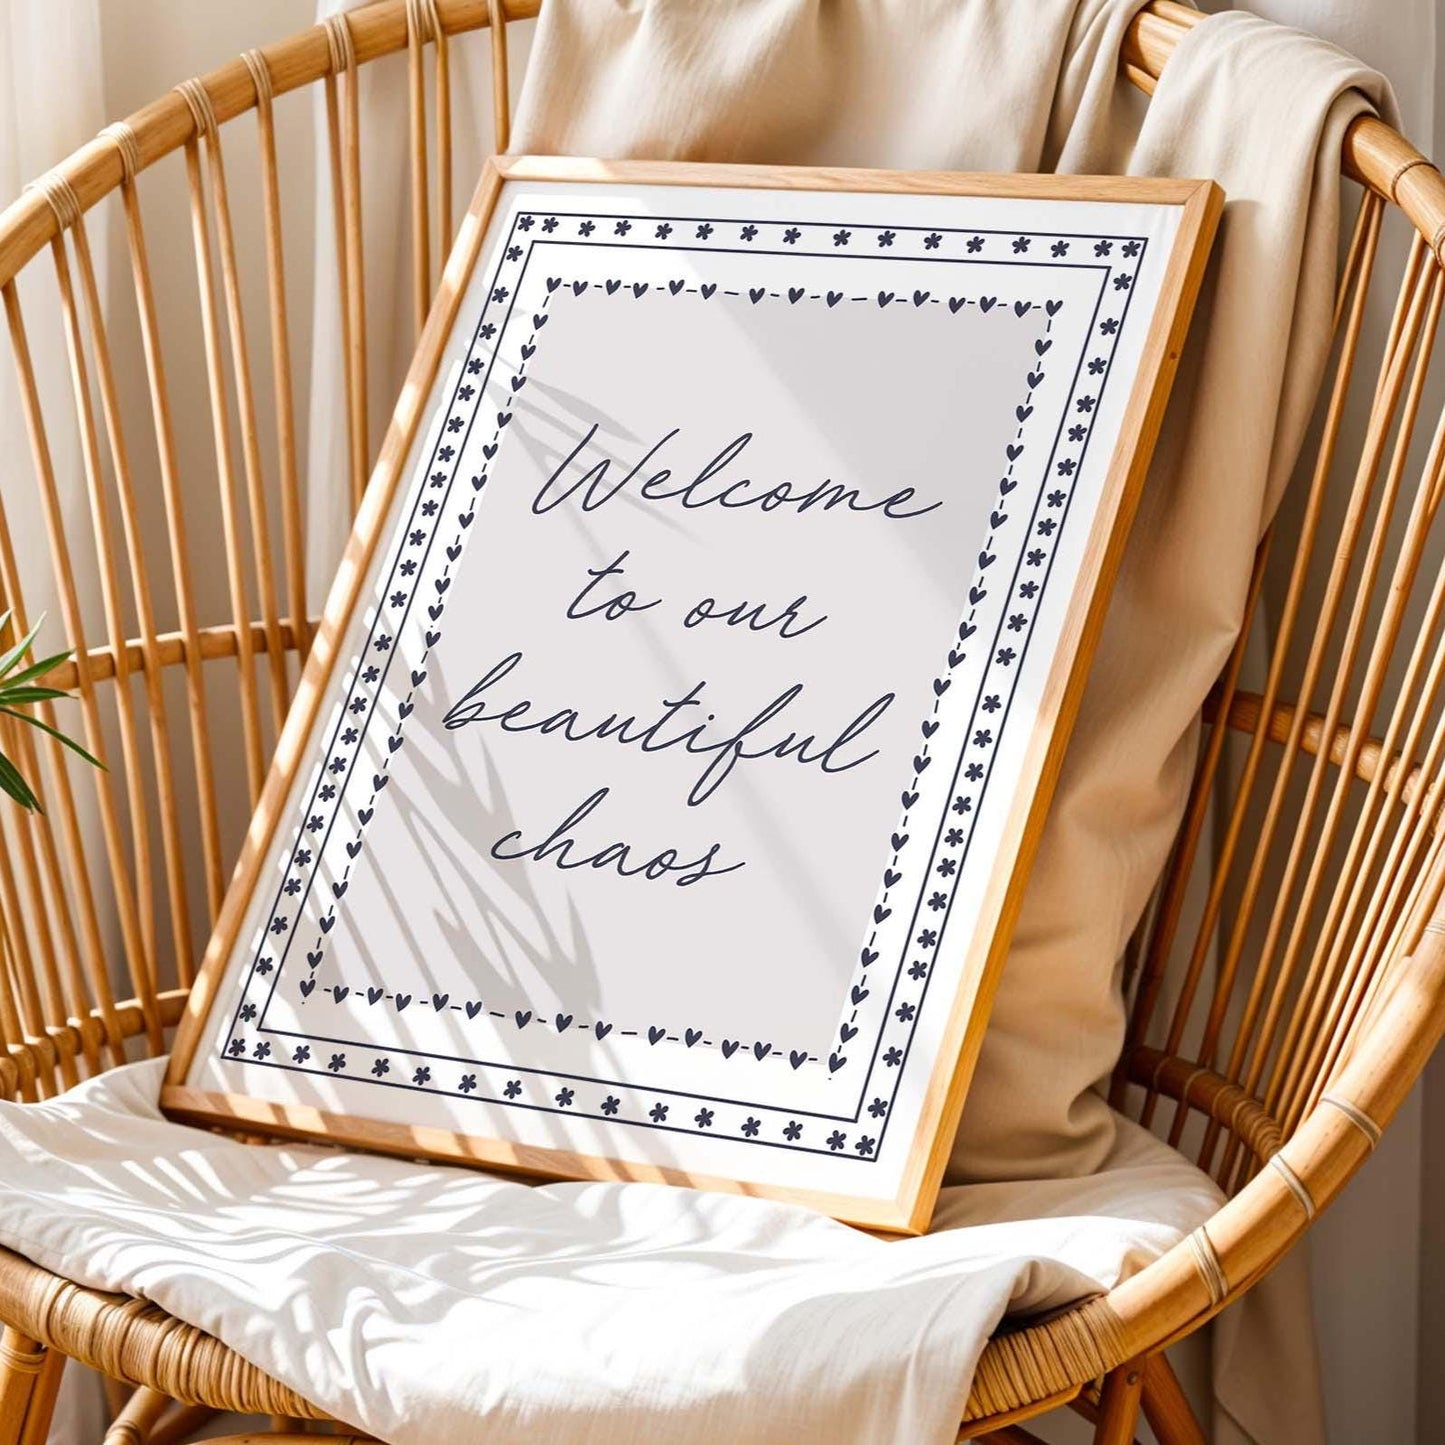 Welcome
to our
beautiful
chaos